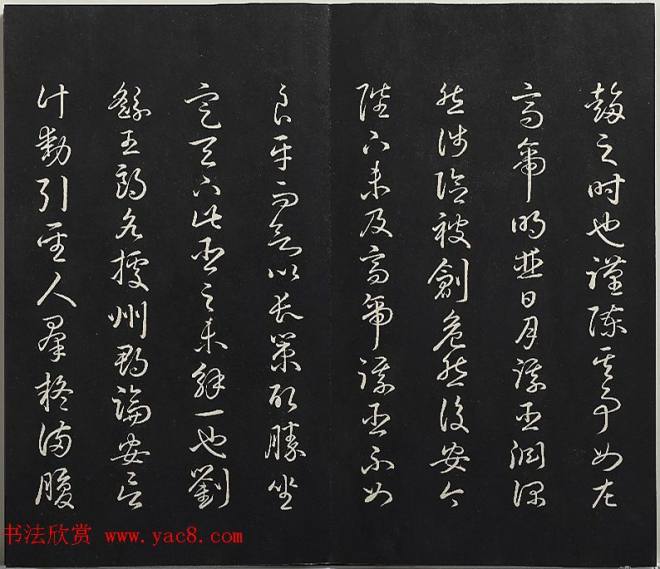 趨之時也謹陳其事如左
高帝明並日月謀臣淵深
然涉險被創危然後安今
陛下未及高帝謀臣不如
良平而欲以長策取勝坐
定天下此臣之未解一也劉
繇王朗各據州郡論安言
計動引聖人羣疑滿腹
书法欣赏 www.yac8.com